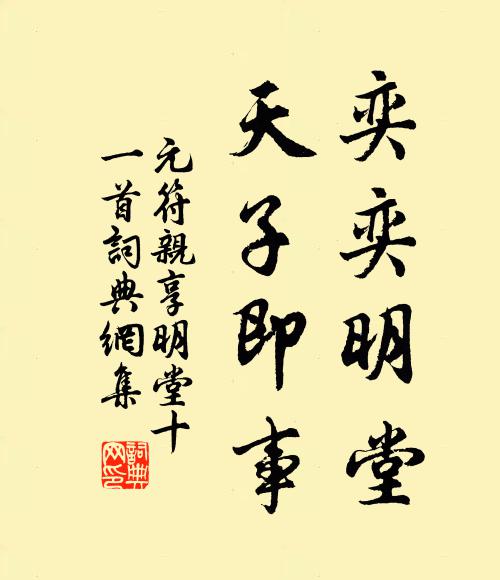 奕奕明堂
天子即事
元符親享明堂十
一首詞典網集
詞典
网印